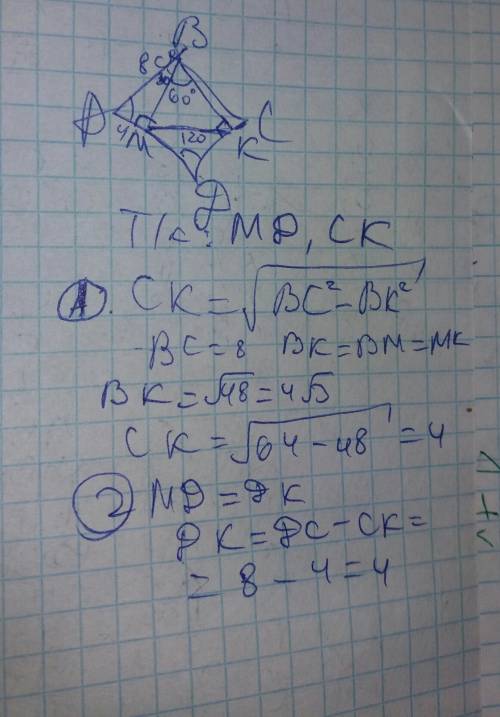 B
8см
30
60°
A
C
4
M
120
K
Д
Т/к: MД, CK
1. CK = √BC² - BK²
BC = 8 BK = BM = MK
BK = √48 = 4√3
CK = √64 - 48 = 4
2 MД = ДK
ДK = ДC - CK =
= 8 - 4 = 4